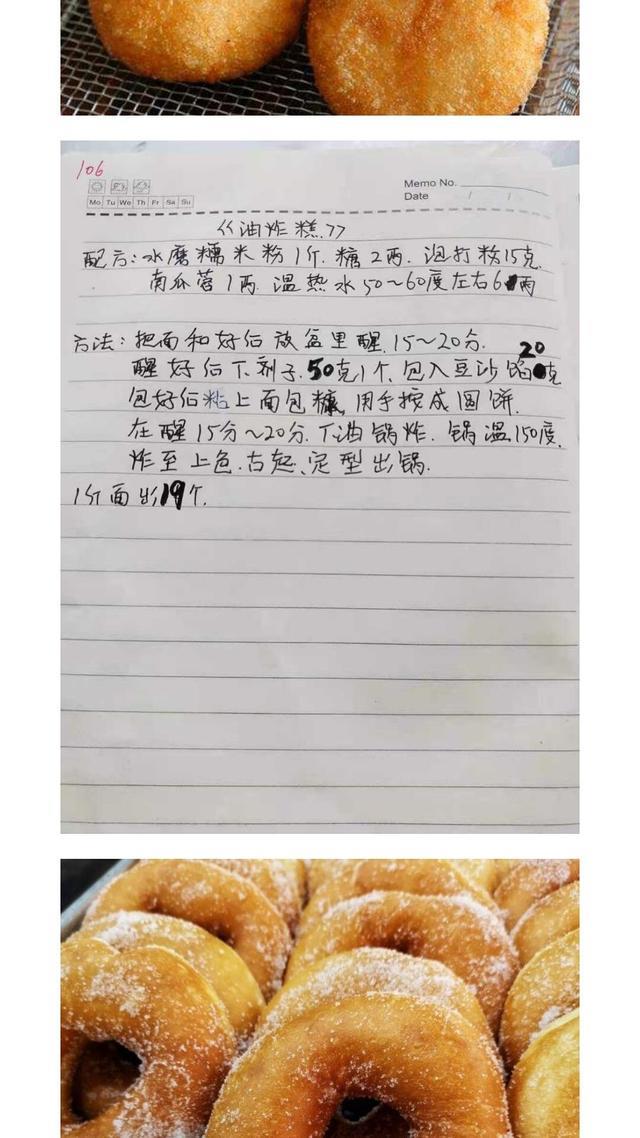 106
Memo No.
Mo Tu We Th Fr Sa Su
Date
《油炸糕》
配方:水磨糯米粉1斤.糖2两.泡打粉15克.
南瓜蓉1两.温热水50~60度左右6两
方法:把面和好后放盆里醒.15~20分.
醒好后下剂子.50克1个.包入豆沙馅20克
包好后粘上面包糠.用手按成圆饼.
在醒15分~20分.下油锅炸.锅温150度.
炸至上色.古起、定型出锅.
1斤面出19个.